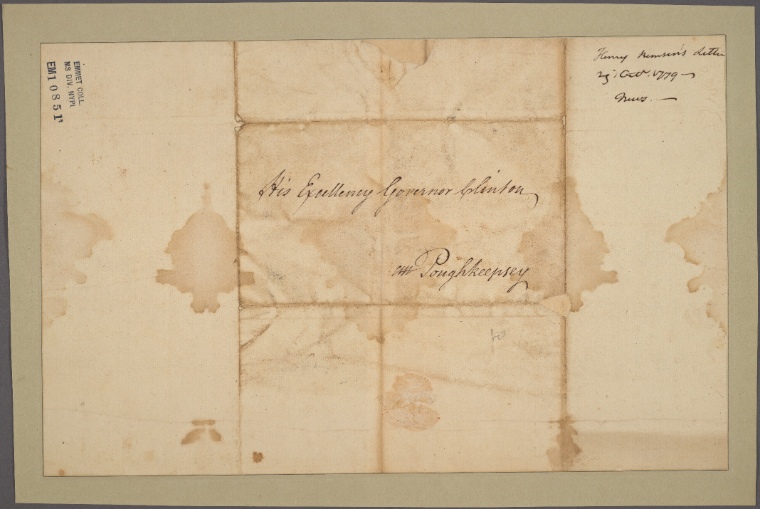 EMMET COLL.
MS DIV. NYPL
EM10851
Henry Remsen's Letter
29 Octr. 1779
News.
His Excellency Governor Clinton
att Poughkeepsey